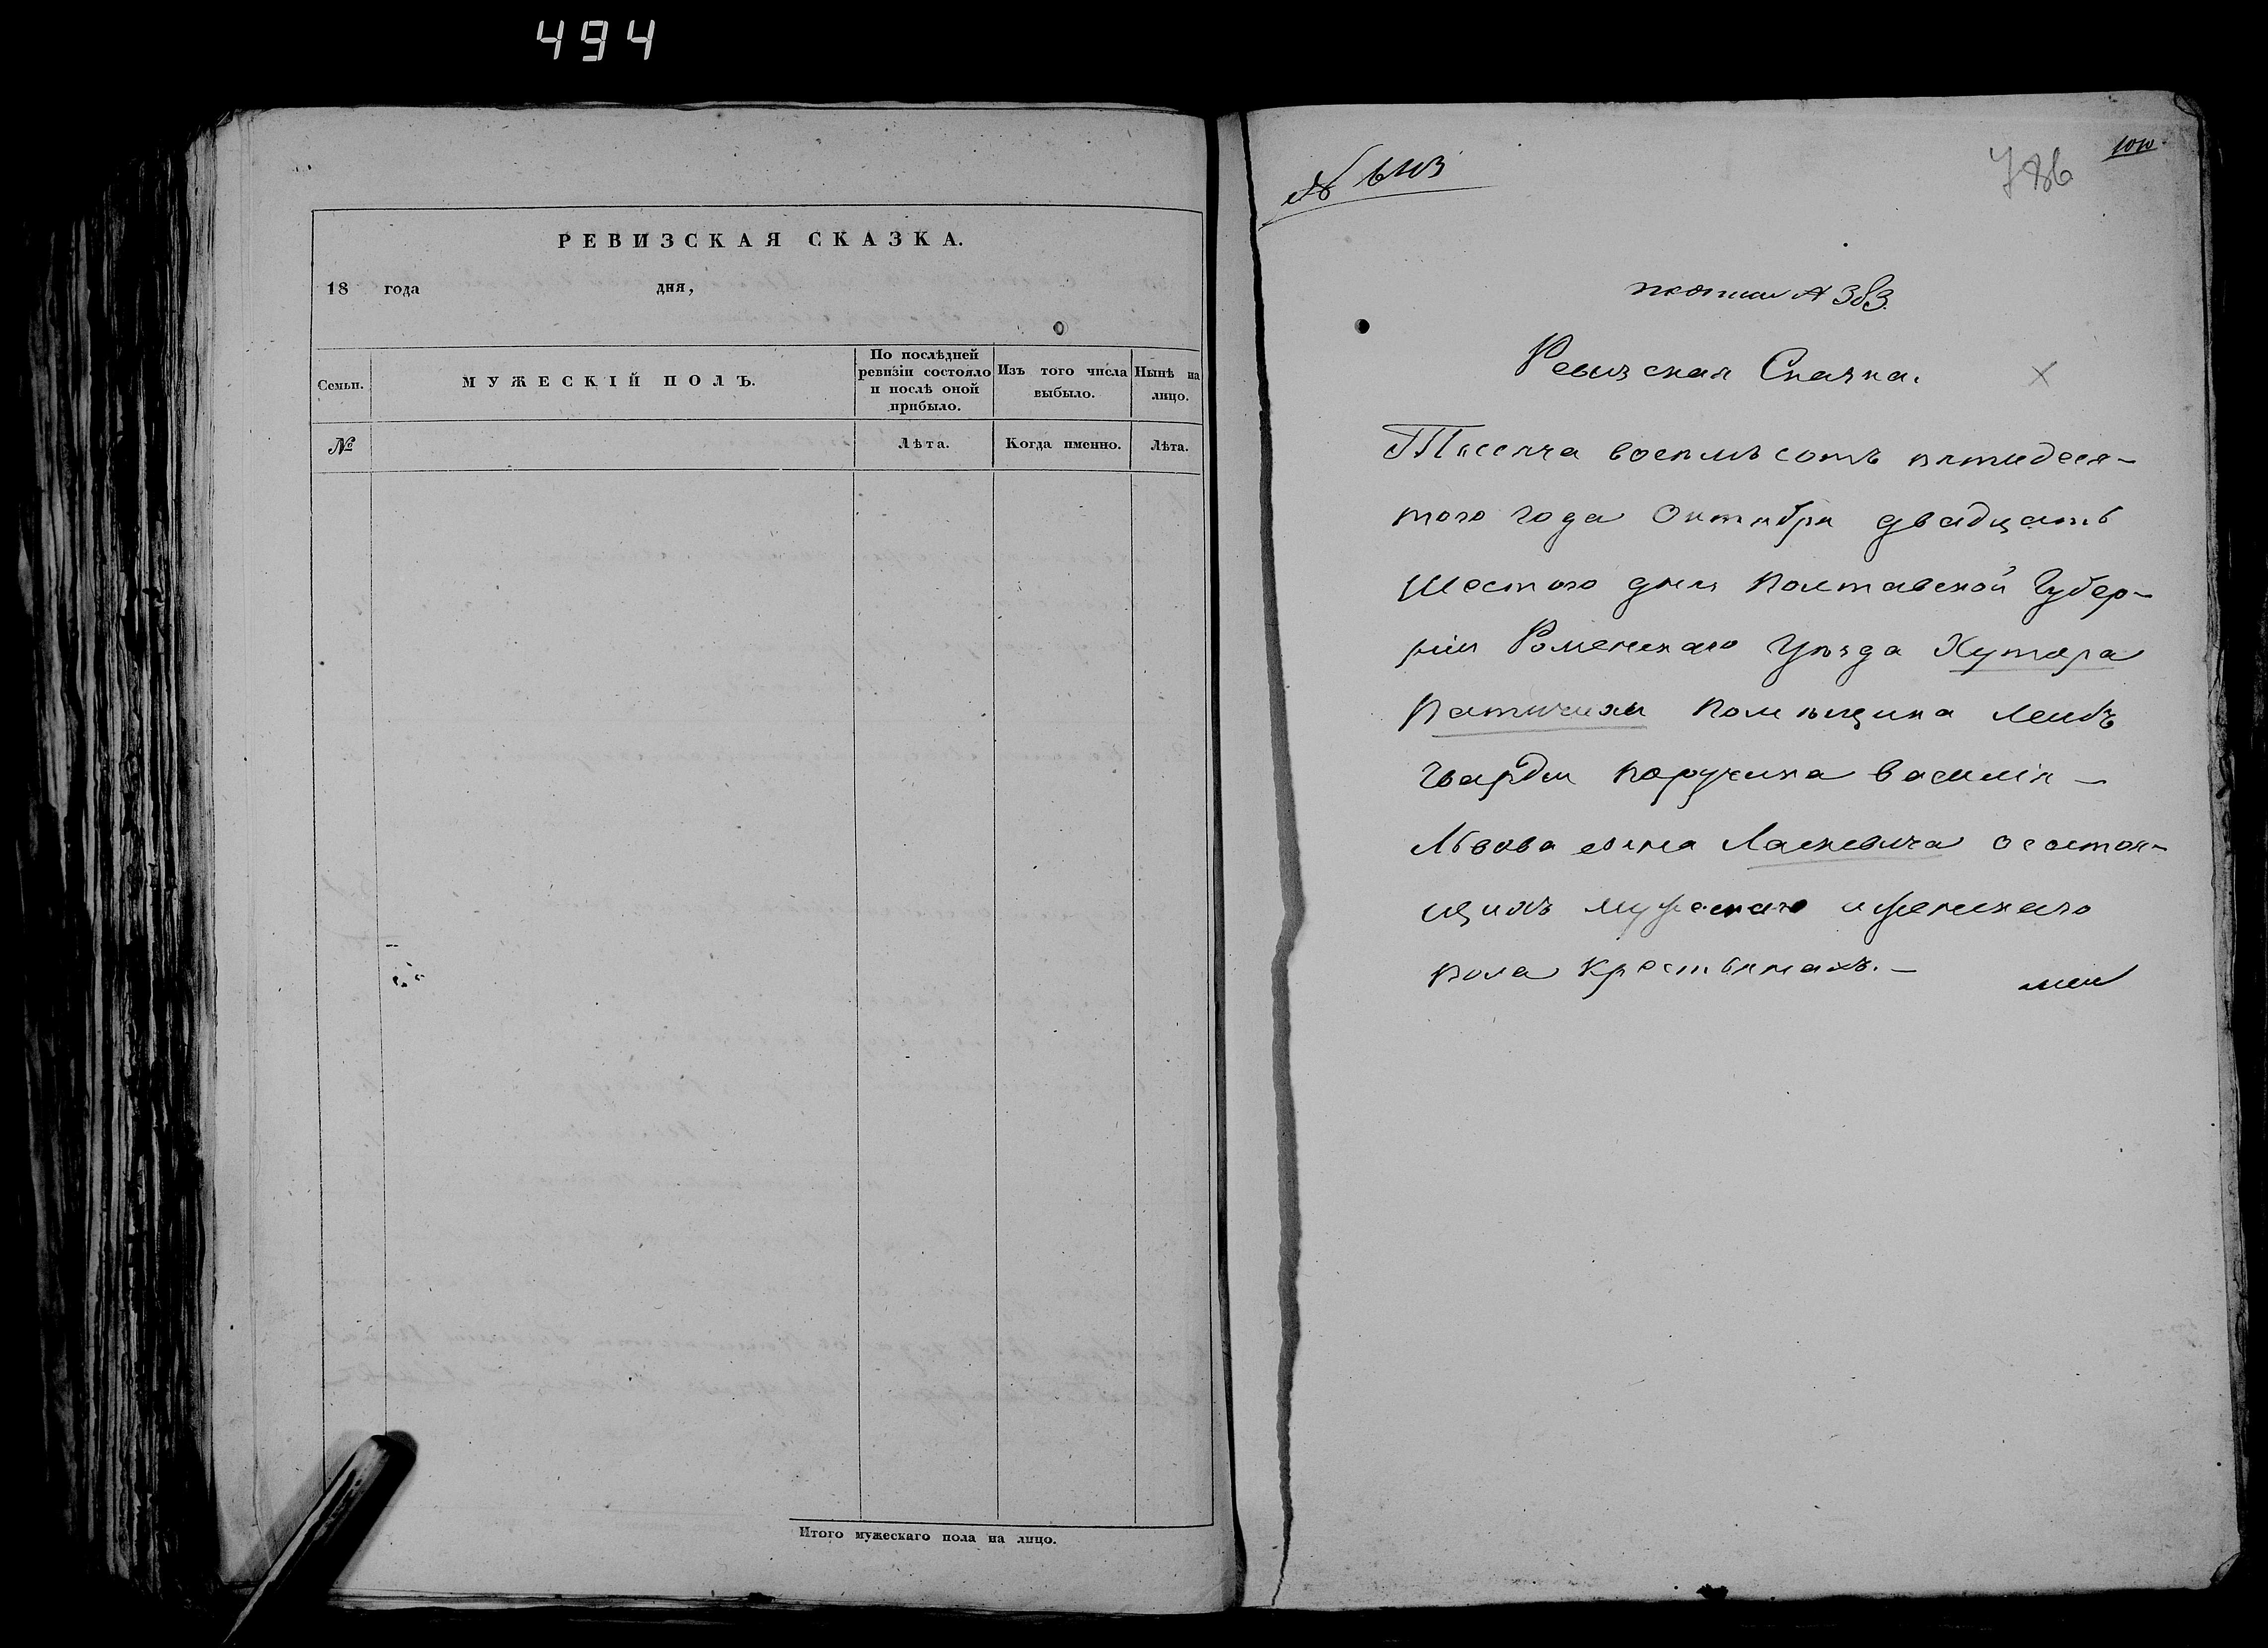 494
РЕВИЗСКАЯ СКАЗКА.
18 года дня,
Семьи.
МУЖЕСКІЙ ПОЛЪ.
По послѣдней ревизіи состояло и послѣ оной прибыло.
Изъ того числа выбыло.
Нынѣ на лицо.
№
Лѣта.
Когда именно.
Лѣта.
Итого мужескаго пола на лицо.
786
383.
Ревизская Сказка.
Тысяча восемьсотъ пятидеся-
того года Октября двадцать
шестого дня Полтавской Губер-
ніи Роменскаго Уѣзда Хутора
помѣщика Лейбъ
Гвардіи Поручика Василія
Львова сына Ласкевича о состоя-
щихъ мужескаго и женскаго
пола крестьянахъ.